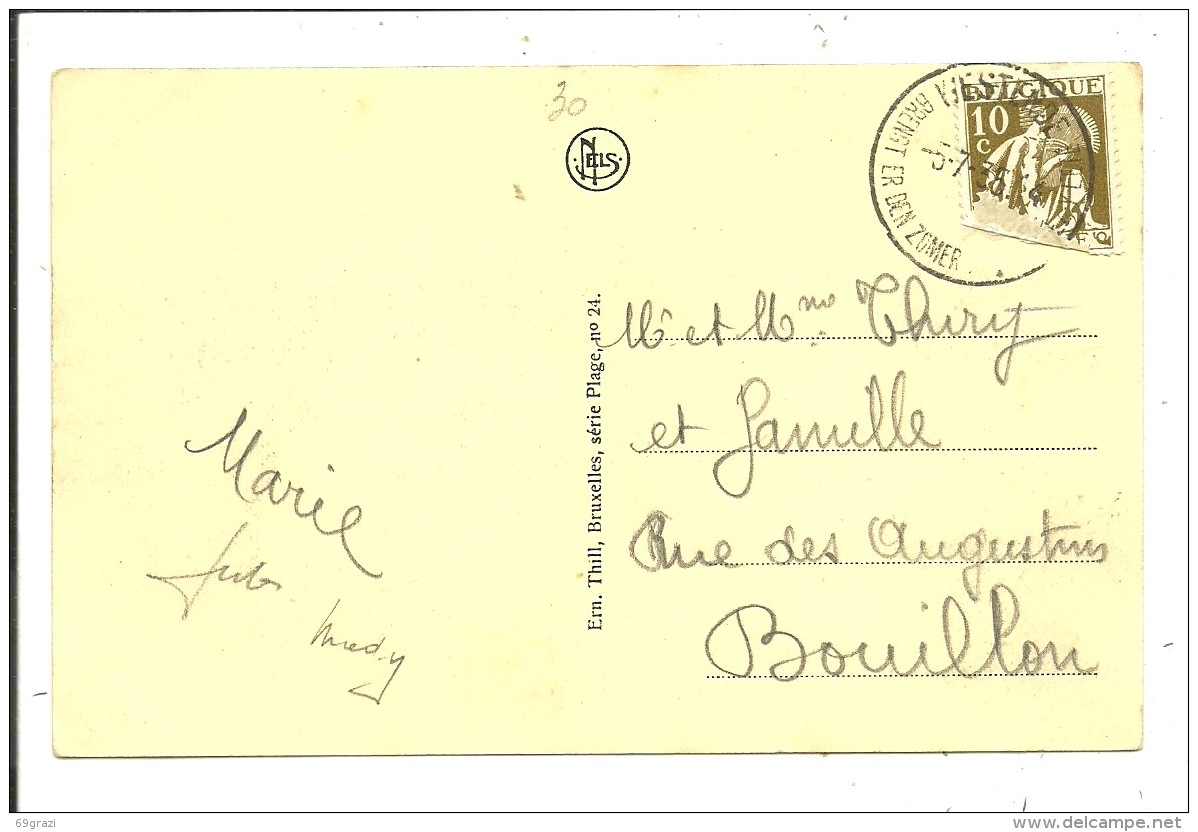 30
NELS
BELGIQUE
10
c
BRENGT ER DEN ZOMER
Ern. Thill, Bruxelles, série Plage, nº 24.
Mr et Mme Thiry
et Famille
Rue des Augustins
Bouillon
Marie
69grazi
www.delcampe.net